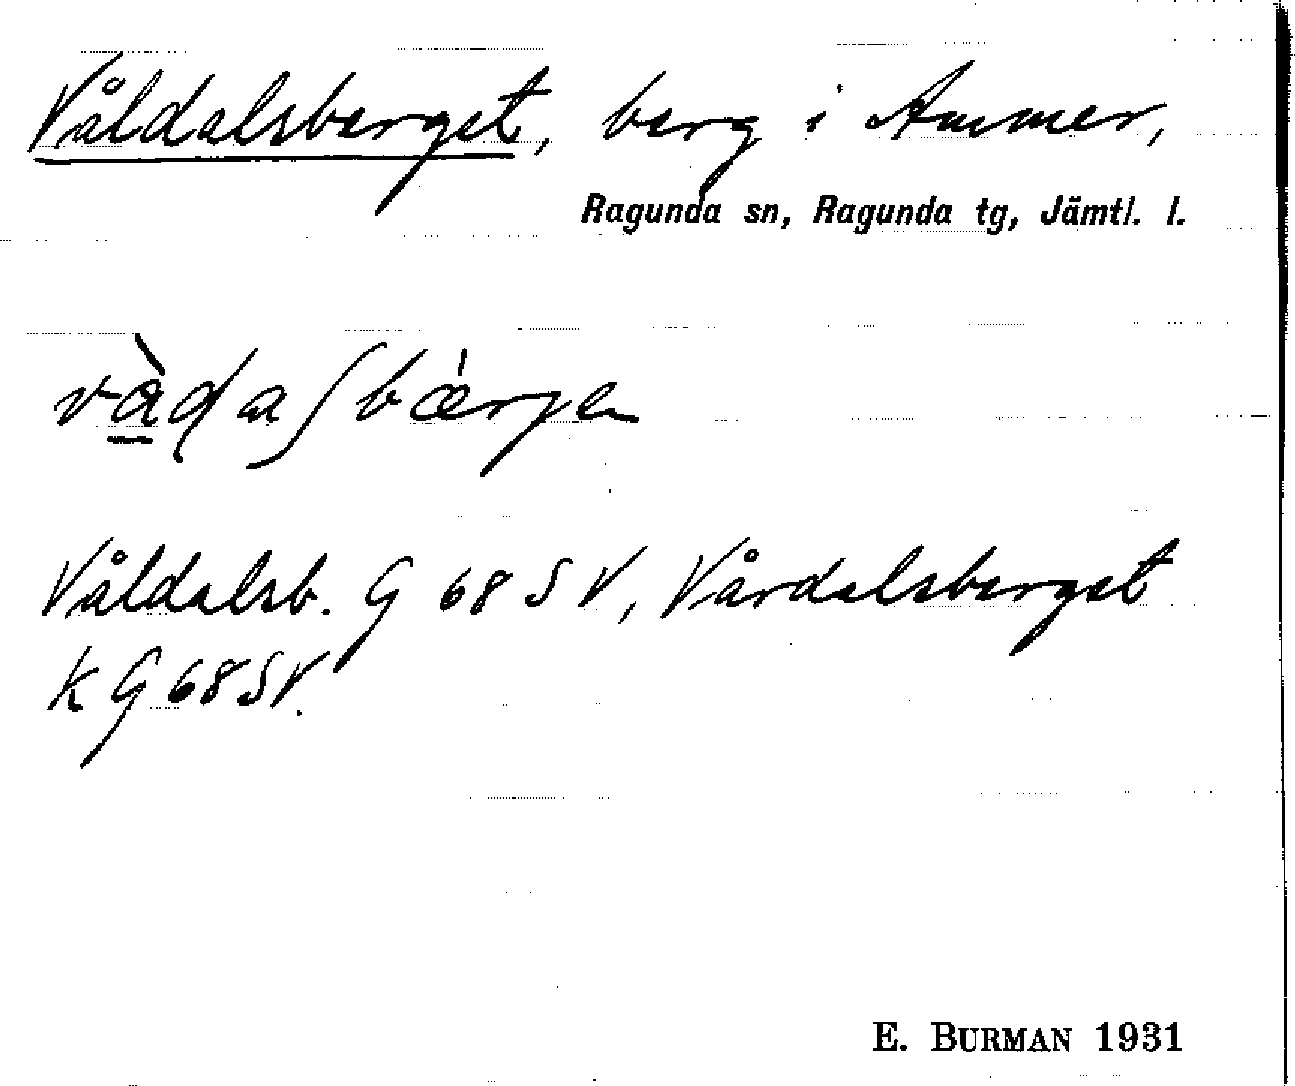 Våldalsberget, berg i Ammer,
Ragunda sn, Ragunda tg, Jämtl. l.
våda∫bærjen
Våldalsb. G 68 SV, Vårdalsberget
K G 68 SV.
E. BURMAN 1931